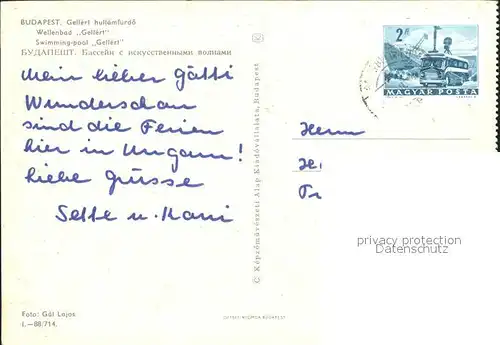 BUDAPEST. Gellért hullámfürdő
Wellenbad „Gellért"
Swimming-pool „Gellért"
БУДАПЕШТ. Бассейн с искусственными волнами
Mein lieber Götti
Wunderschön
sind die Ferien
hier in Ungarn!
Liebe Grüsse
Sette u. Kari
Foto: Gál Lajos
I.—88/714.
© Képzőművészeti Alap Kiadóvállalata, Budapest
2 Ft
MAGYAR POSTA
Herrn
privacy protection
Datenschutz